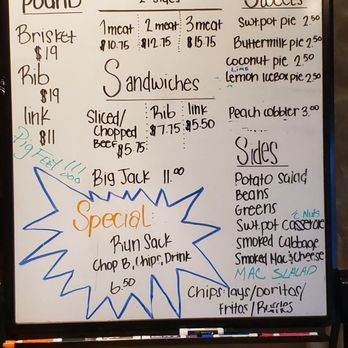 Pound
Brisket
$19
Rib
$19
link
$11
Pig Feet!!!
1 meat
$10.75
2 meat
$12.75
3 meat
$15.75
Sandwiches
Sliced/
Chopped
Beef
$5.75
Rib
$7.75
link
$5.50
Big Jack 11.00
Special
Run Sack
Chop B, Chips, Drink
6.50
Sweets
Swt.pot pie 2.50
Buttermilk pie 2.50
coconut pie 2.50
Lime
lemon Icebox pie 2.50
Peach cobbler 3.00
Sides
Potato salad
Beans
Greens
Swt.pot casserole
c Nuts
smoked cabbage
Smoked Mac & cheese
MAC SLALAD
Chips: lays/Doritos/
Fritos/Ruffles